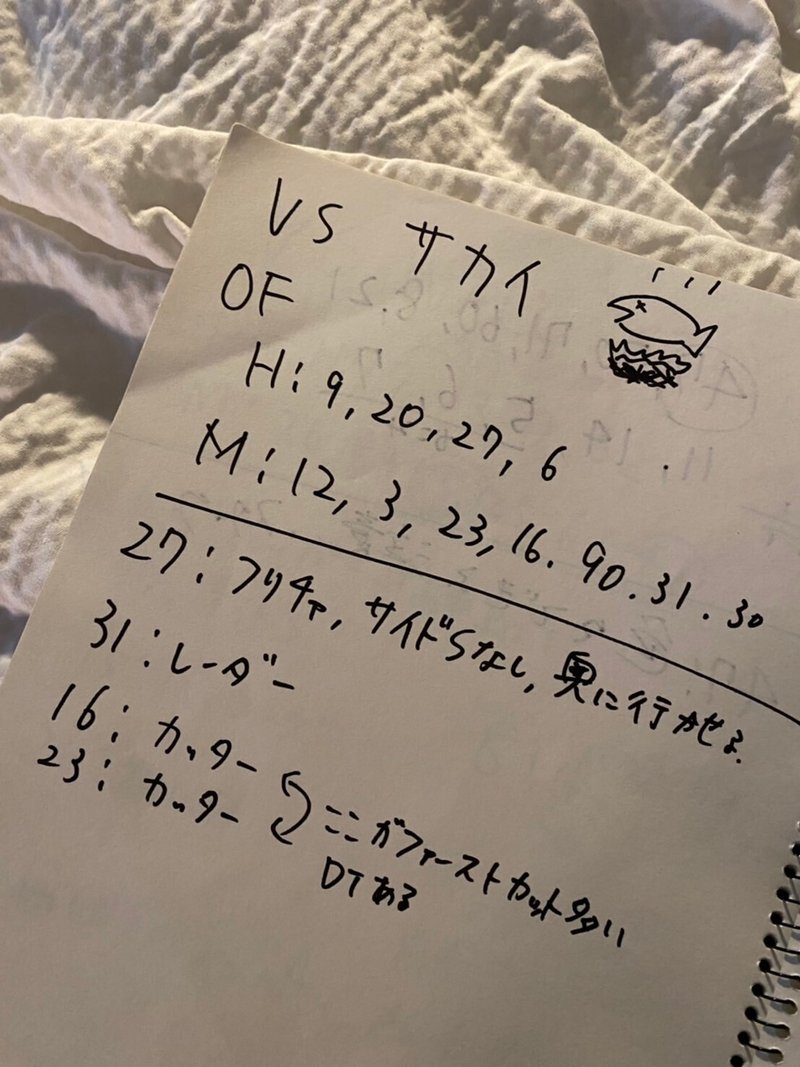 VS サカイ
OF
H: 9, 20, 27, 6
M: 12, 3, 23, 16. 90. 31. 30
27: フリチァ, サイドSなし, 奥に行かせる.
31: レーダー
16: カッター
23: カッター
ここがファーストカット多い
DTある